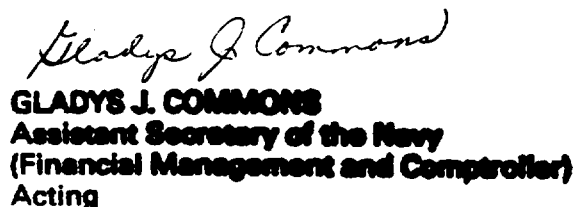 Gladys J Commons
GLADYS J. COMMONS
Assistant Secretary of the Navy
(Financial Management and Comptroller)
Acting